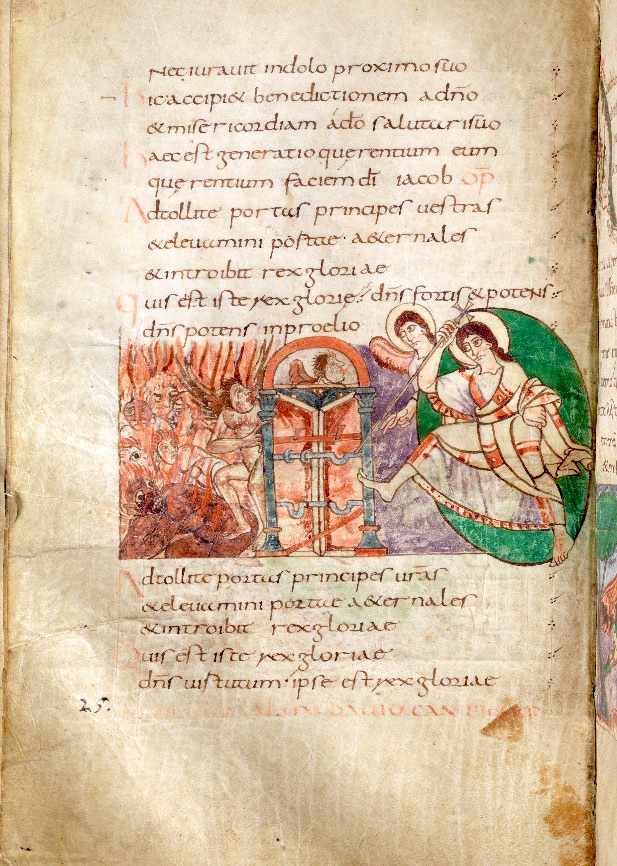 Nec iuravit in dolo proximo suo
hic accipi& benedictionem a dn̄o
& misericordiam a dō salutari suo
haec est generatio querentium eum
querentium faciem dī iacob
Adtollite portas principes vestras
& elevamini portae a&ernales
& introibit rex gloriae
quis est iste rex glorie? dn̄s fortis & potens
dn̄s potens in proelio
Adtollite portas principes vr̄as
& elevamini portae a&ernales
& introibit rex gloriae
Quis est iste rex gloriae
dn̄s virtutum ipse est rex gloriae
25.
DAVID